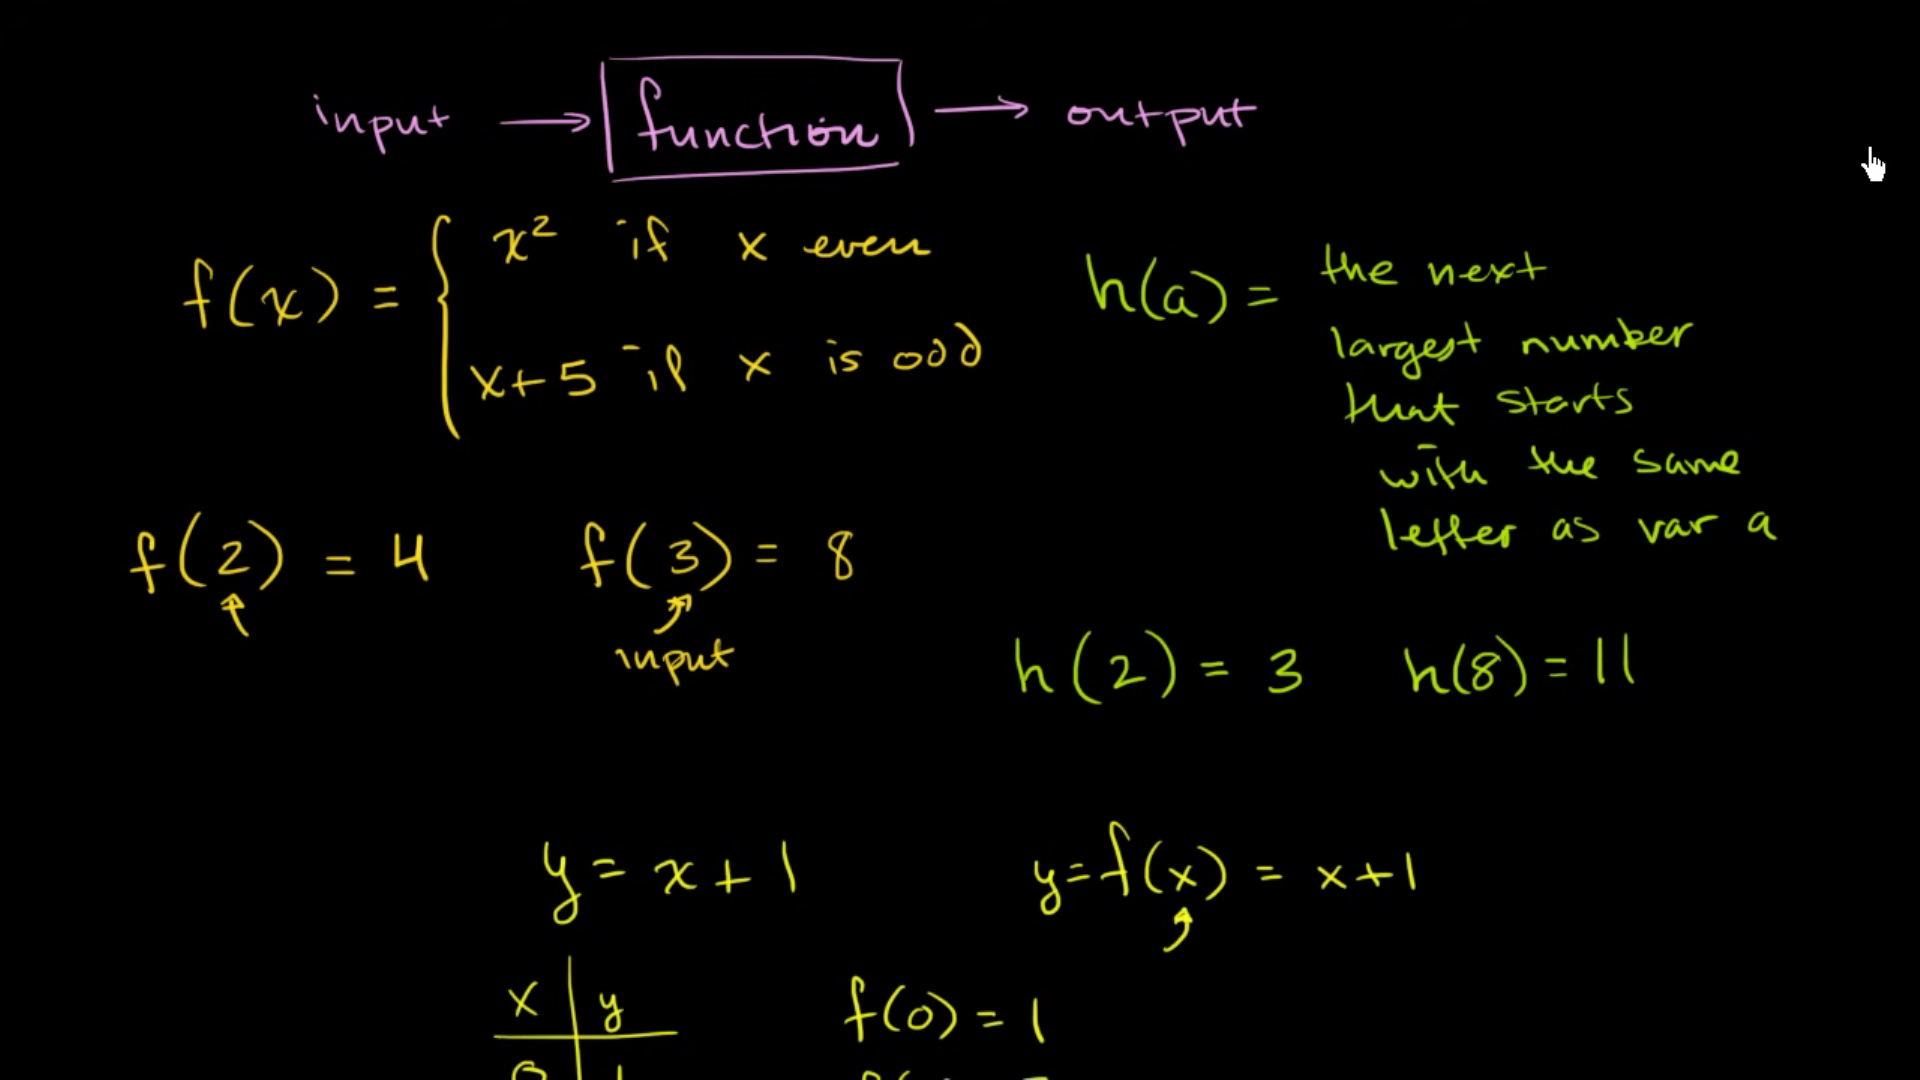 input → function → output
f(x) = { x² if x even
x+5 if x is odd
h(a) = the next
largest number
that starts
with the same
letter as var a
f(2) = 4 f(3) = 8
input
h(2) = 3 h(8) = 11
y = x + 1 y = f(x) = x + 1
x y
f(0) = 1